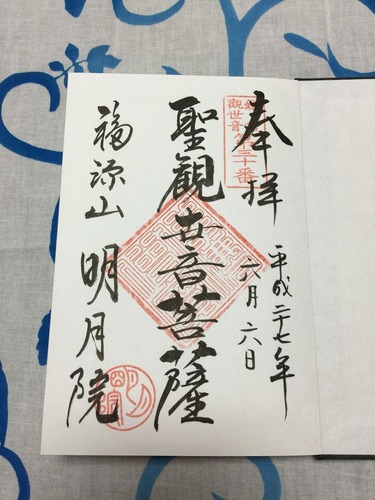 奉拝
平成二十七年
六月六日
聖観世音菩薩
福源山 明月院
観世音第三十番